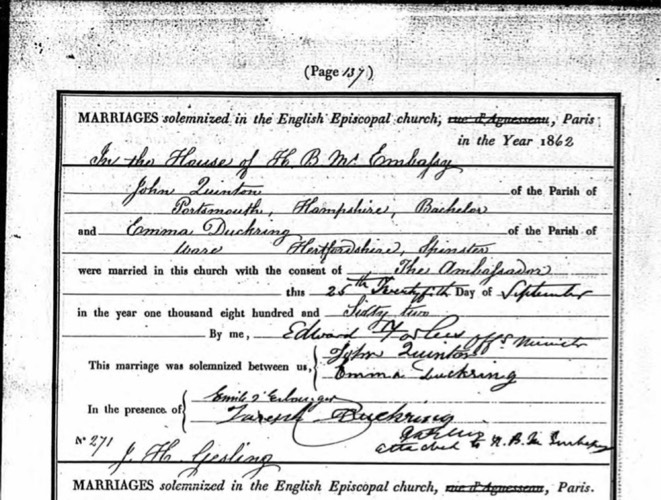 (Page 137)
MARRIAGES solemnized in the English Episcopal church, rue d'Aguesseau, Paris
in the Year 1862
In the House of H. B. M's Embassy
John Quinton of the Parish of
Portsmouth, Hampshire, Bachelor
and Emma Duckring of the Parish of
Ware Hertfordshire, Spinster
were married in this church with the consent of The Ambassador
this 25th Twentyfifth Day of September
in the year one thousand eight hundred and Sixty two
By me, Edward Minister
This marriage was solemnized between us, John Quinton
Emma Duckring
In the presence of Emile
Joseph Duckring
attached to H. B. M. Embassy
No 271
J. H. Gesling
MARRIAGES solemnized in the English Episcopal church, rue d'Aguesseau, Paris.